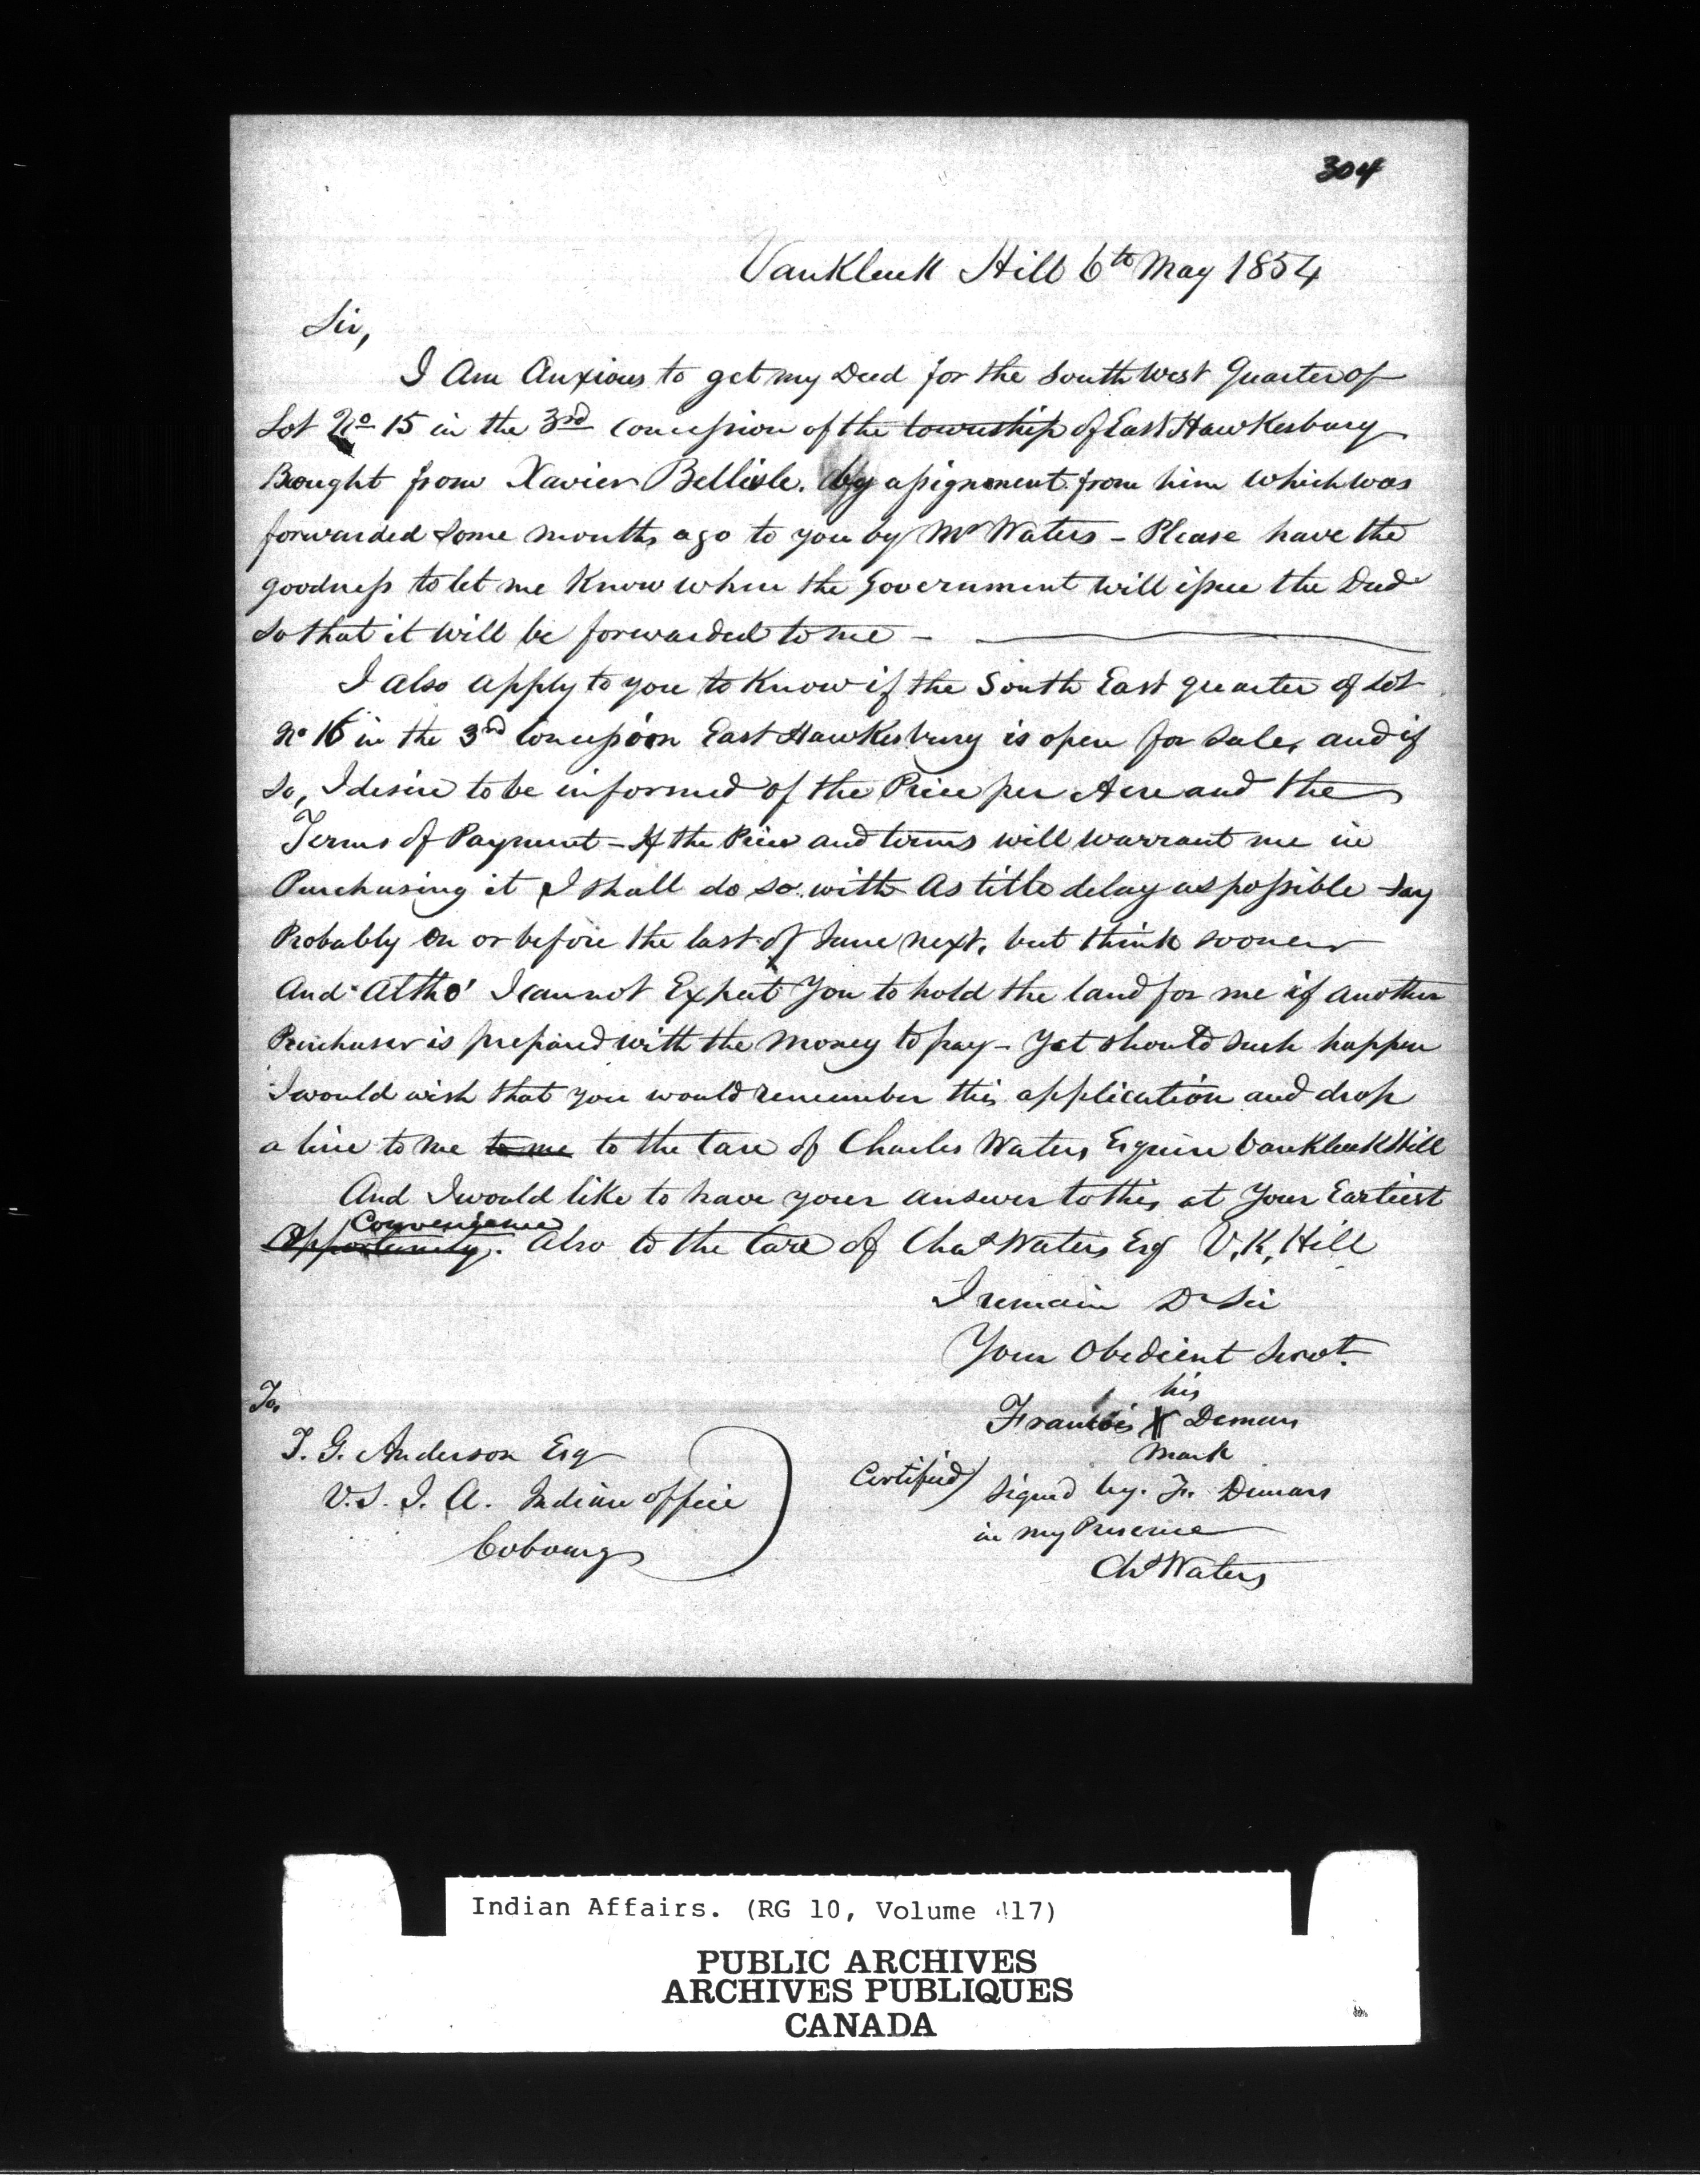 304
VanKleek Hill 6th May 1854
Sir,
I Am Anxious to get my Deed for the South West Quarter of
Lot No 15 in the 3rd concession of the township of East Hawkesbury
Bought from Xavier Bellisle. by assignment from him which was
forwarded some months ago to you by Mr Waters - Please have the
goodness to let me Know when the Government will issue the Deed
so that it will be forwarded to me -
I also apply to you to Know if the South East quarter of Lot
No 16 in the 3rd Concession East Hawkesbury is open for sale, and if
so, I desire to be informed of the Price per Acre and the
Terms of Payment - If the Price and terms will warrant me in
Purchasing it I shall do so with As little delay as possible say
Probably on or before the last of June next, but think sooner
And Altho' I cannot Expect You to hold the land for me if another
Purchaser is prepared with the Money to pay - Yet should such happen
I would wish that you would remember this application and drop
a line to me to me to the Care of Charles Waters Esquire VankleekHill
And I would like to have your answer to this at Your Earliest
Convenience
Opportunity. Also to the Care of Chas Waters Esq V.K. Hill
I remain Dr Sir
Your Obedient Servt.
his
Francois X Demers
mark
To,
T. G. Anderson Esq
V. S. I. A. Indian office
Cobourg
Certified) Signed by Fr. Demars
in my Presence
Chs Waters
Indian Affairs. (RG 10, Volume 417)
PUBLIC ARCHIVES
ARCHIVES PUBLIQUES
CANADA